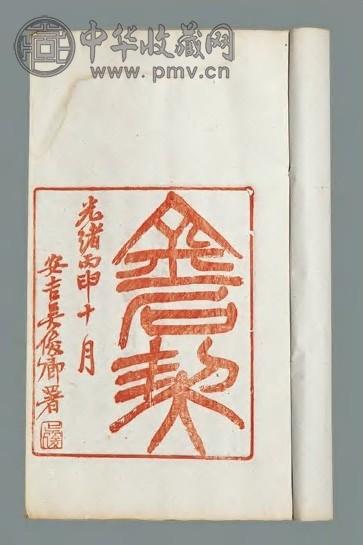 中华收藏网
www.pmv.cn
金石契
光緒丙申十月
安吉吳俊卿署